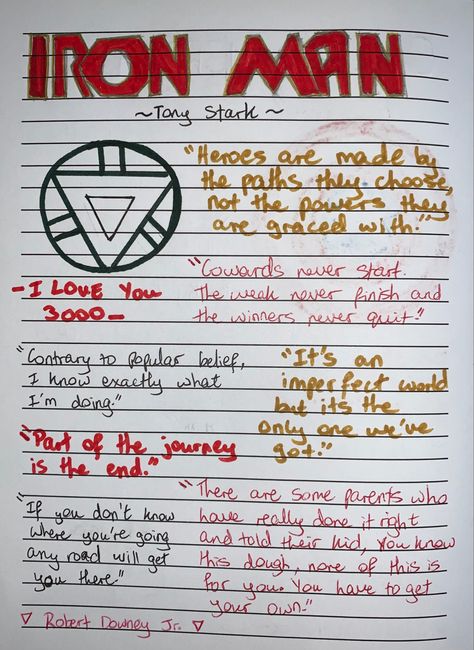 IRON MAN
~Tony Stark~
"Heroes are made by
the paths they choose,
not the powers they
are graced with."
"Cowards never start.
The weak never finish and
the winners never quit."
- I LOVE YOU
3000 -
"Contrary to popular belief,
I know exactly what
I'm doing."
"It's an
imperfect world
but its the
only one we've
got."
"Part of the journey
is the end."
"There are some parents who
have really done it right
and told their kid, you know
this dough, none of this is
for you. You have to get
your own."
"If you don't know
where you're going
any road will get
you there"
▽ Robert Downey Jr. ▽